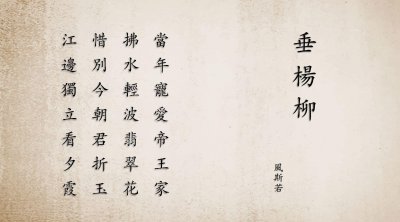 垂楊柳
風斯若
當年寵愛帝王家
拂水輕波翡翠花
惜別今朝君折玉
江邊獨立看夕霞